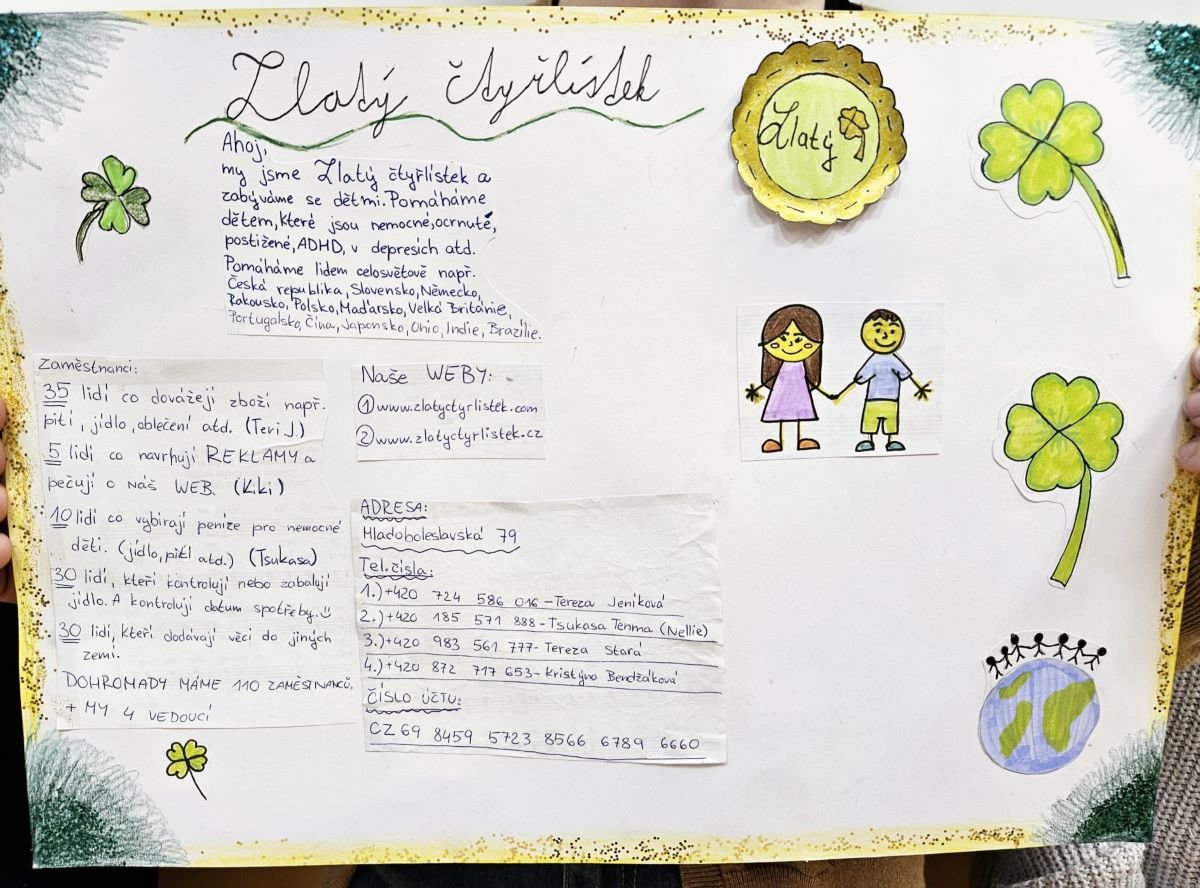 Zlatý čtyřlístek
Ahoj,
my jsme Zlatý čtyřlístek a
zabýváme se dětmi. Pomáháme
dětem, které jsou nemocné, ocrnuté,
postižené, ADHD, v depresích atd.
Pomáháme lidem celosvětově např.
Česká republika, Slovensko, Německo,
Rakousko, Polsko, Maďarsko, Velká Británie,
Portugalsko, Čína, Japonsko, Ohio, Indie, Brazílie.
Zlatý
Zaměstnanci:
35 lidí co dovážejí zboží např.
pití, jídlo, oblečení atd. (Teri J.)
5 lidí co navrhují REKLAMY a
pečují o náš WEB. (Kiki)
10 lidí co vybírají peníze pro nemocné
děti. (jídlo, pití atd.) (Tsukasa)
30 lidí, kteří kontrolují nebo zabalují
jídlo. A kontrolují datum spotřeby.
30 lidí, kteří dodávají věci do jiných
zemí.
DOHROMADY MÁME 110 ZAMĚSTNANCŮ.
+ MY 4 VEDOUCÍ
Naše WEBY:
1 www.zlatyctyrlistek.com
2 www.zlatyctyrlistek.cz
ADRESA:
Mladoboleslavská 79
Tel. čísla:
1.) +420 724 586 016 - Tereza Jeníková
2.) +420 185 571 888 - Tsukasa Tenma (Nellie)
3.) +420 983 561 777 - Tereza Stará
4.) +420 872 717 653 - Kristýna Bendžáková
ČÍSLO ÚČTU:
CZ 69 8459 5723 8566 6789 6660